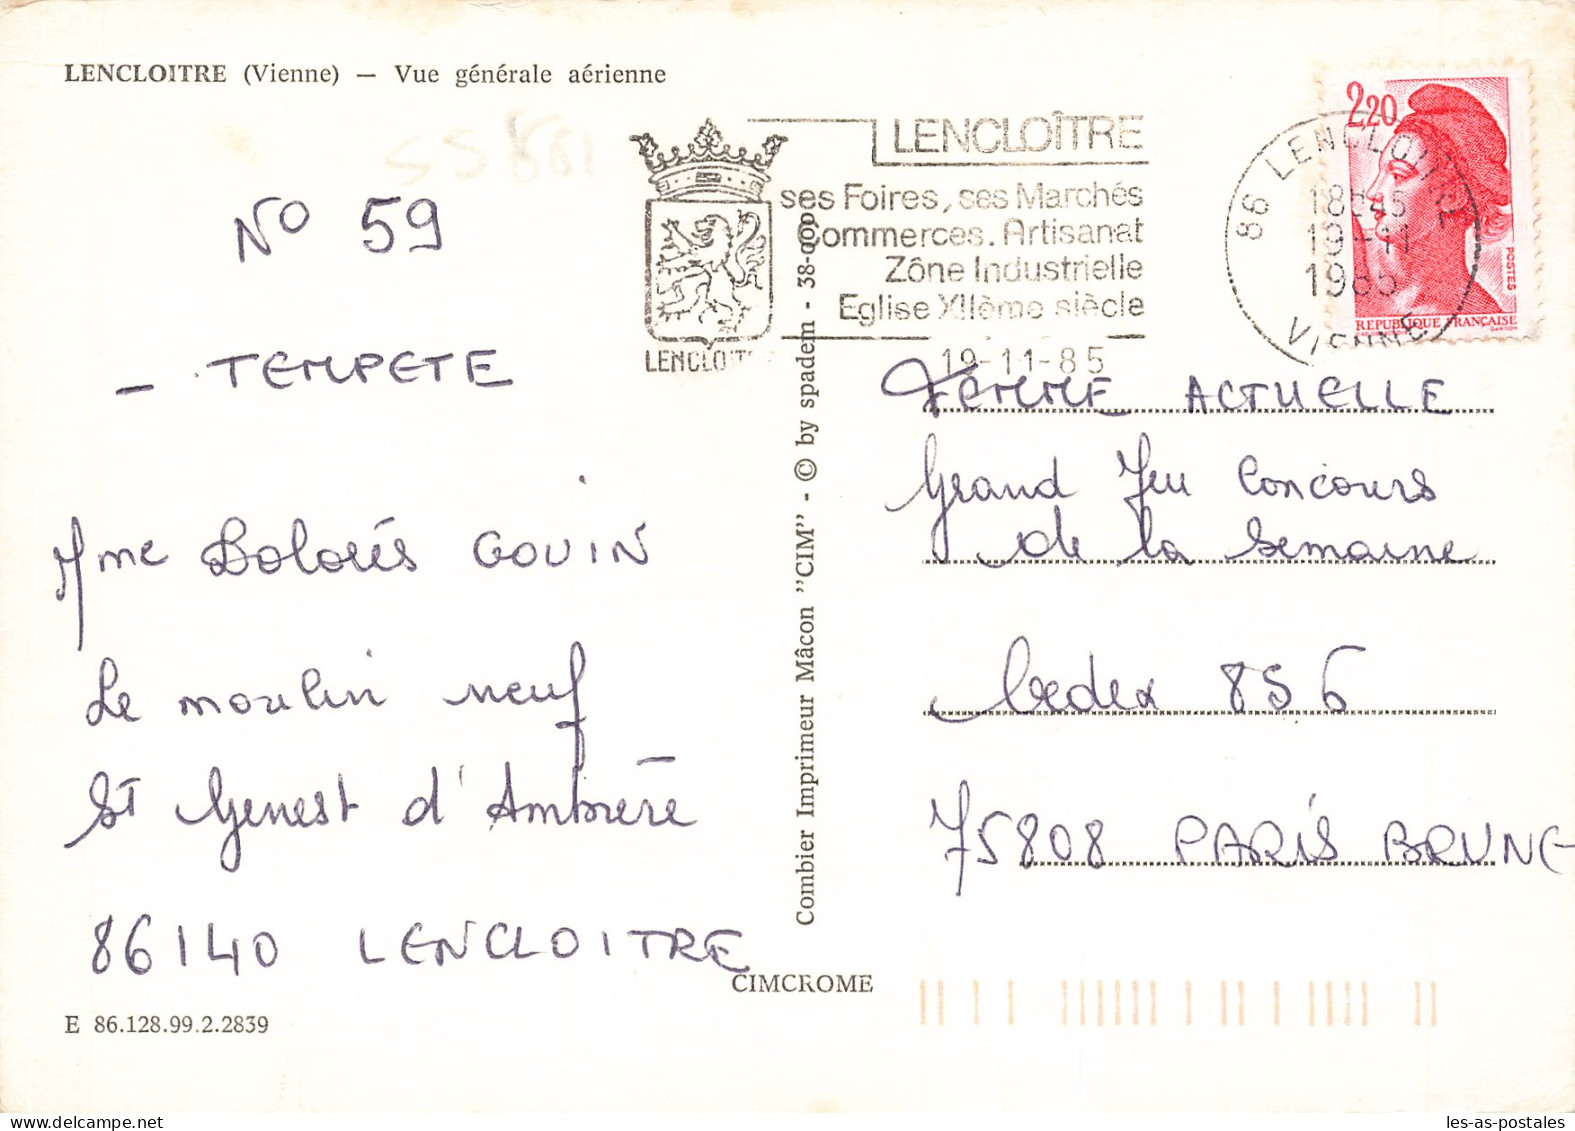 LENCLOITRE (Vienne) — Vue générale aérienne
N° 59
- TEMPETE
Mme Dolorés GOUIN
Le moulin neuf
St Genest d'Ambière
86140 LENCLOITRE
E 86.128.99.2.2839
CIMCROME
Combier Imprimeur Mâcon "CIM" - © by spadem - 38-000
LENCLOÎTRE
ses Foires, ses Marchés
Commerces. Artisanat
Zône Industrielle
Eglise XIIème siècle
LENCLOIT
19-11-85
86 LENCLOITRE
18H45
19-11
1985
VIENNE
2,20
POSTES
REPUBLIQUE FRANÇAISE
FEMME ACTUELLE
Grand Jeu Concours
de la Semaine
Cedex 856
75808 PARIS BRUNE
les-as-postales